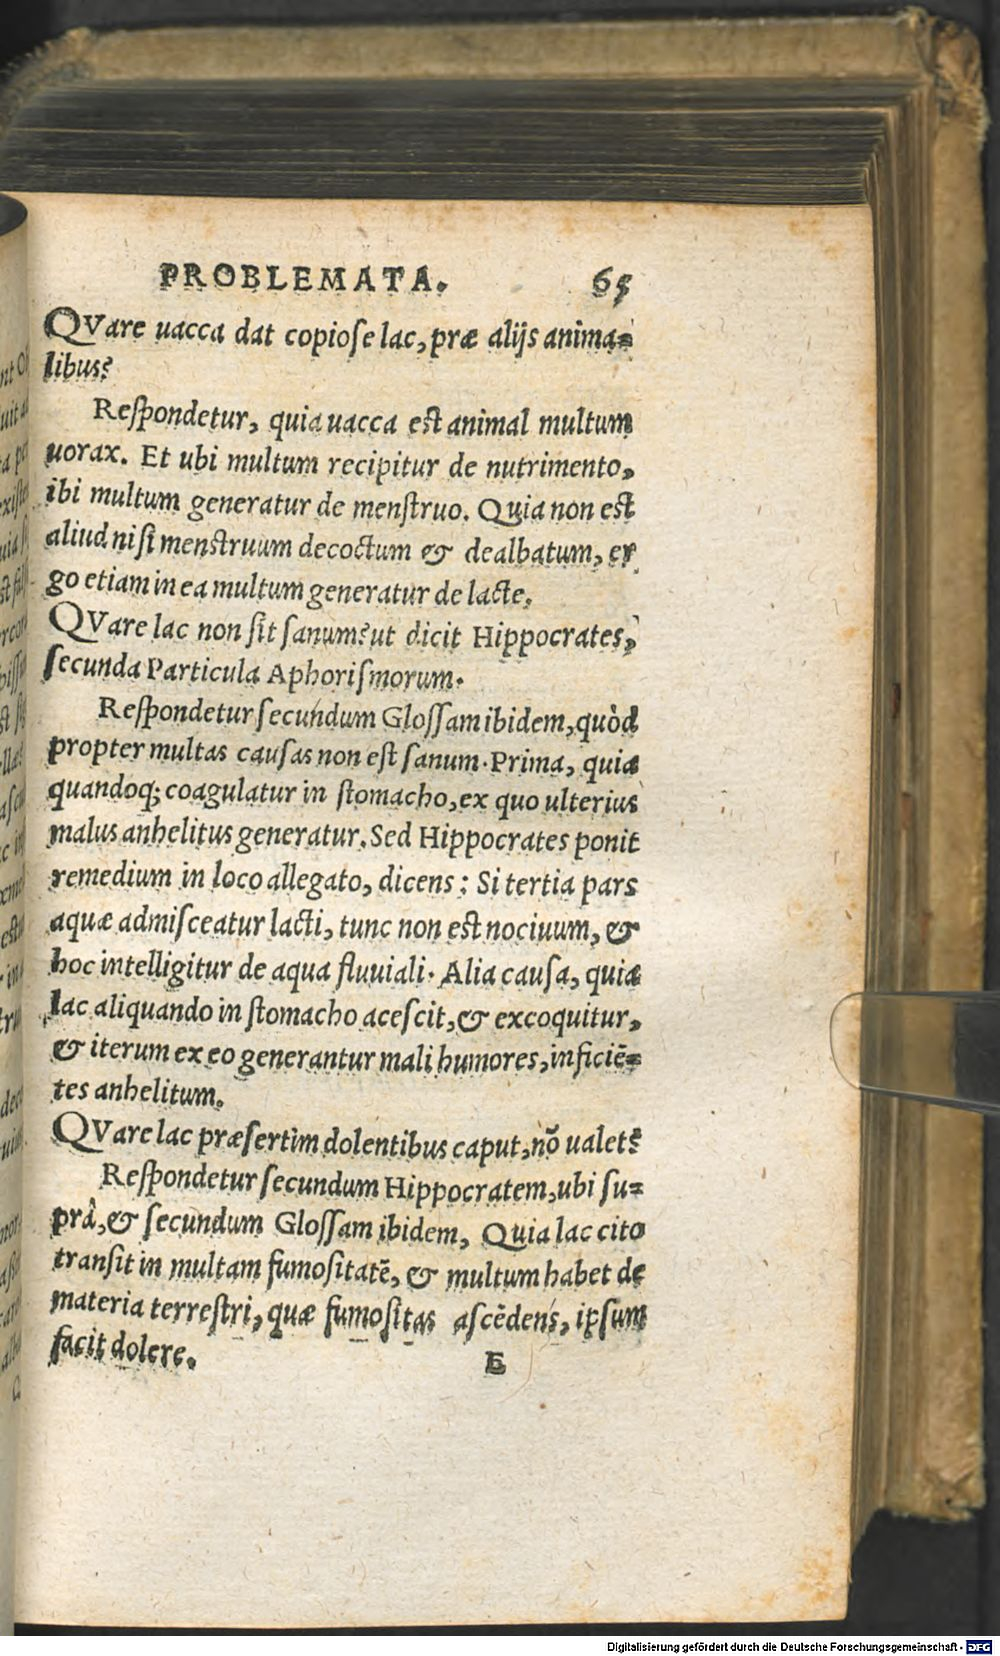 PROBLEMATA. 65
QVare uacca dat copioſe lac, præ alijs anima=
libus?
Reſpondetur, quia uacca eſt animal multum
uorax. Et ubi multum recipitur de nutrimento,
ibi multum generatur de menſtruo. Quia non eſt
aliud niſi menſtruum decoctum & dealbatum, er
go etiam in ea multum generatur de lacte.
QVare lac non ſit ſanum? ut dicit Hippocrates,
ſecunda Particula Aphoriſmorum.
Reſpondetur ſecundum Gloſſam ibidem, quòd
propter multas cauſas non eſt ſanum. Prima, quia
quandoq; coagulatur in ſtomacho, ex quo ulterius
malus anhelitus generatur. Sed Hippocrates ponit
remedium in loco allegato, dicens: Si tertia pars
aquæ admiſceatur lacti, tunc non eſt nociuum, &
hoc intelligitur de aqua fluuiali. Alia cauſa, quia
lac aliquando in ſtomacho aceſcit, & excoquitur,
& iterum ex eo generantur mali humores, inficiē=
tes anhelitum.
QVare lac præſertim dolentibus caput, nō ualet?
Reſpondetur ſecundum Hippocratem, ubi ſu=
prà, & ſecundum Gloſſam ibidem, Quia lac cito
tranſit in multam fumoſitatē, & multum habet de
materia terreſtri, quæ fumoſitas aſcēdens, ipſum
facit dolere.
E
Digitalisierung gefördert durch die Deutsche Forschungsgemeinschaft - DFG